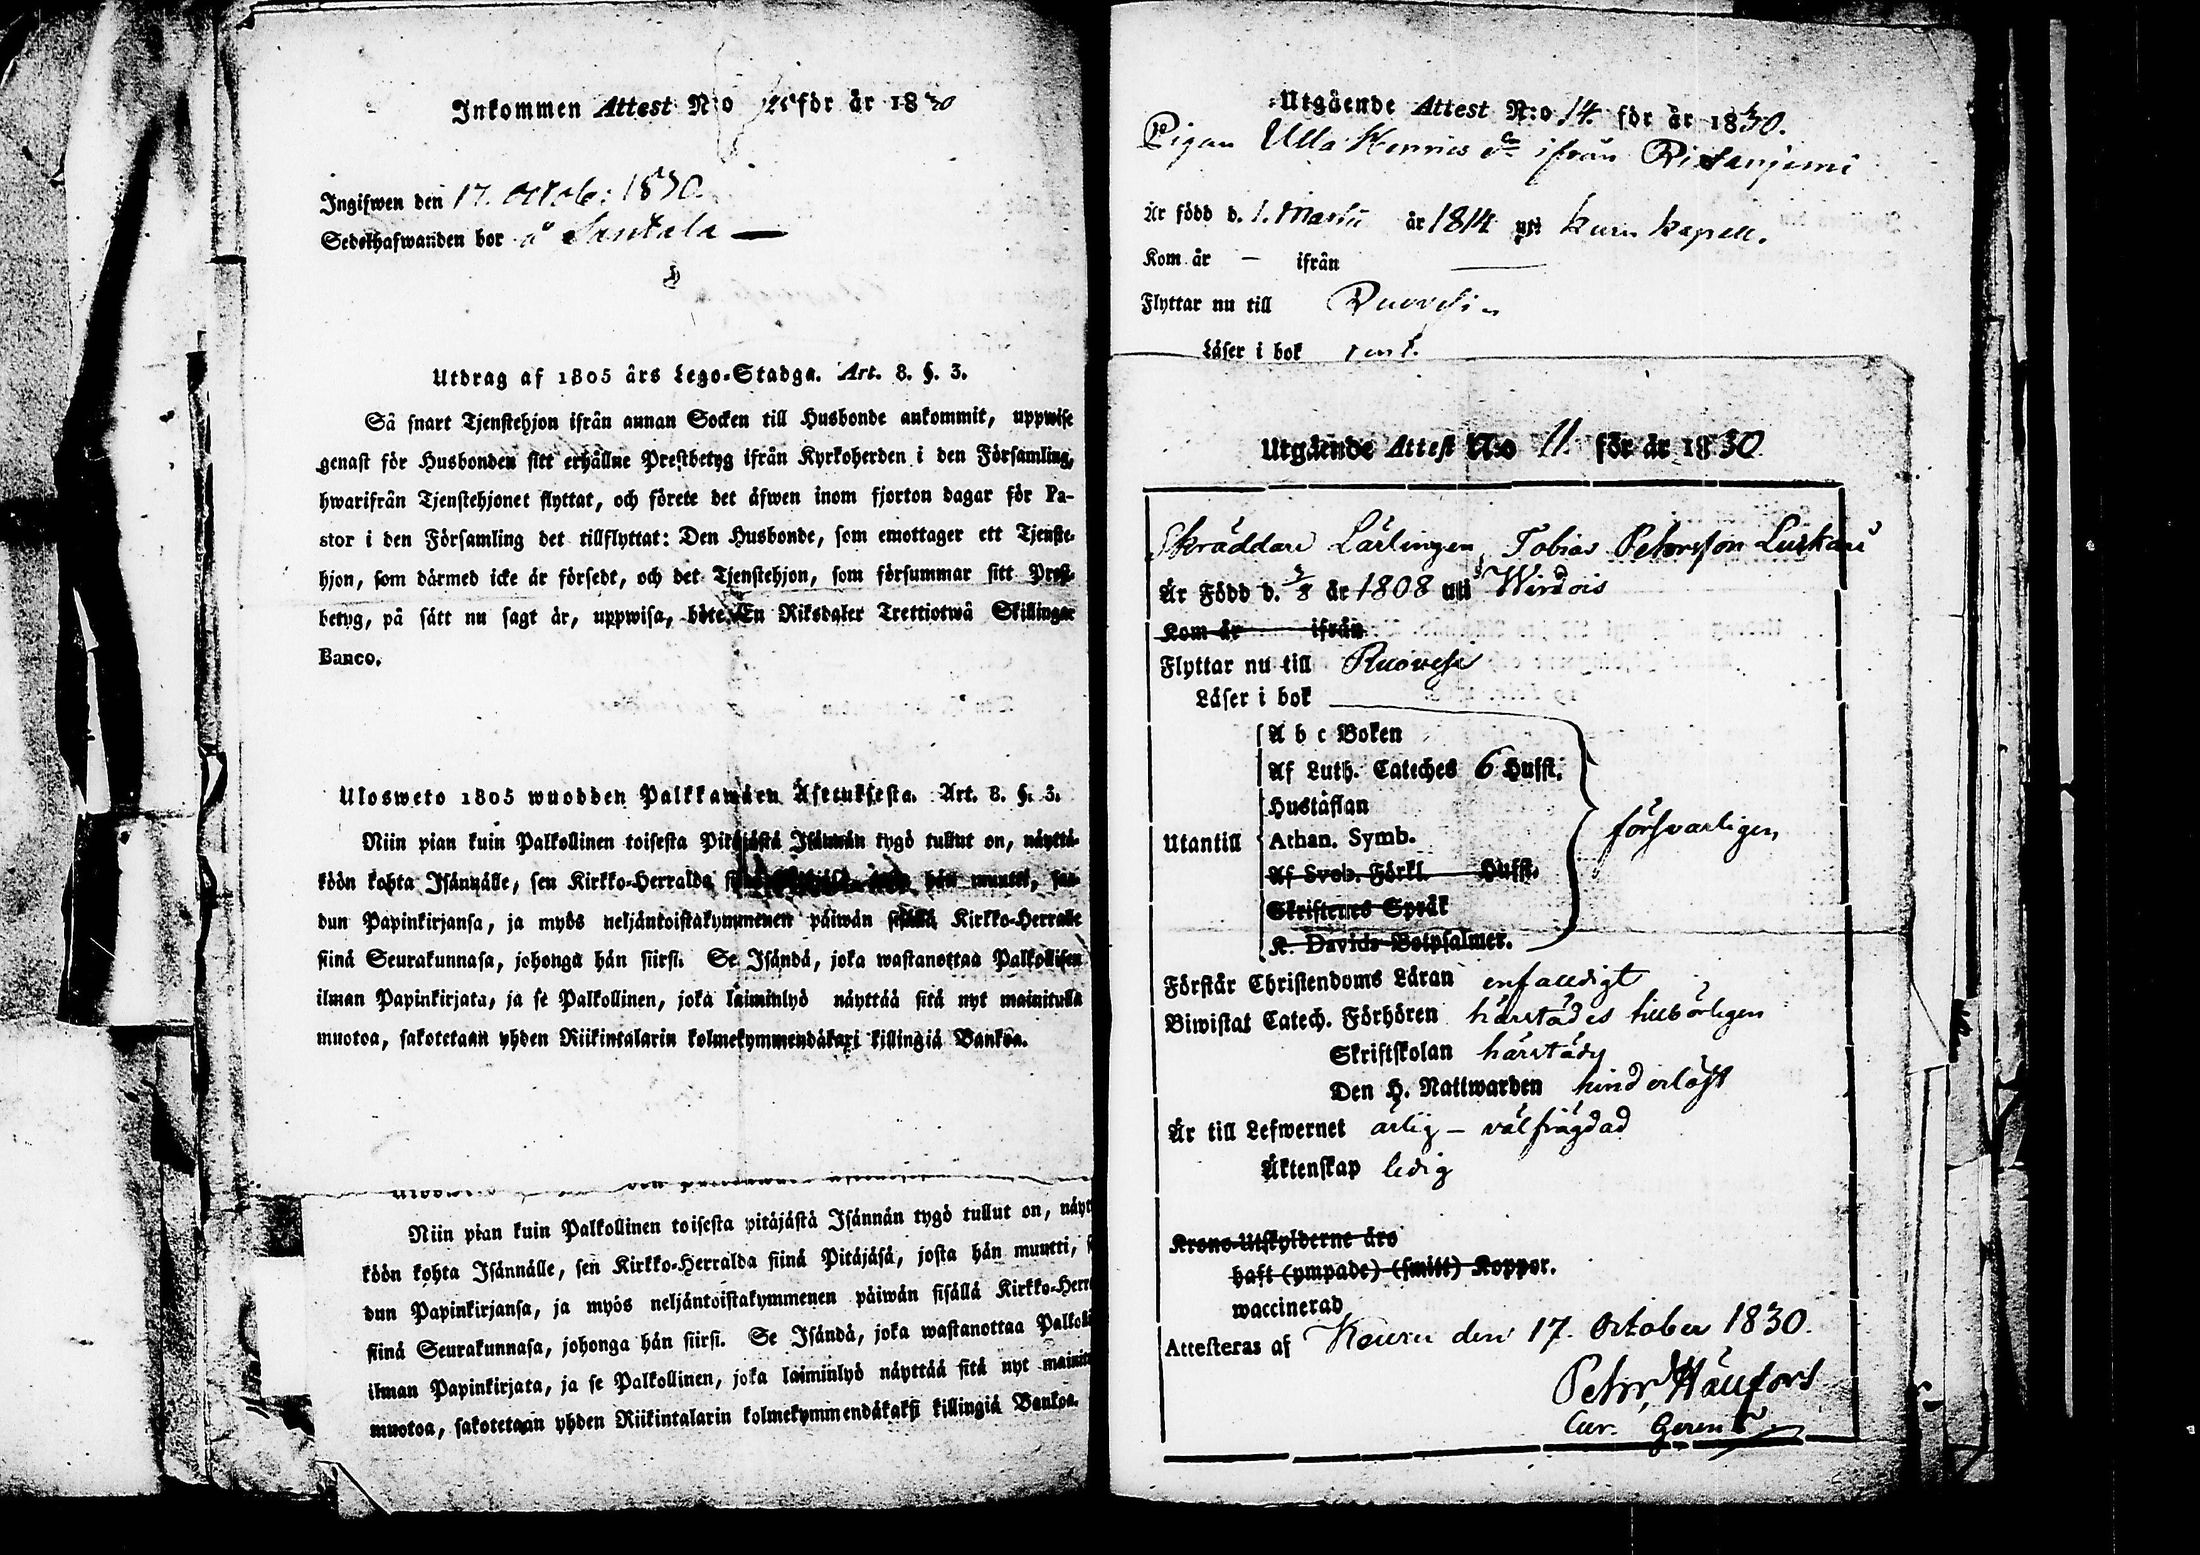 Inkommen Attest N:o för år 1830
Ingifwen den 17. octob: 1830.
Sedelhafwanden bor å Santala —
Utdrag af 1805 års Lego-Stadga. Art. 8. §. 3.
Så snart Tjenstehjon ifrån annan Socken till Husbonde ankommit, uppwise
genast för Husbonden sitt erhållne Prestbetyg ifrån Kyrkoherden i den Församling,
hwarifrån Tjenstehjonet flyttat, och förete det äfwen inom fjorton dagar för Pa-
stor i den Församling det tillflyttat: Den Husbonde, som emottager ett Tjenste-
hjon, som därmed icke är försedt, och det Tjenstehjon, som försummar sitt Prest-
betyg, på sätt nu sagt är, uppwisa, böte En Riksdaler Trettiotwå Skillingar
Banco.
Ulosweto 1805 wuodden Palkkawäen Asetuksesta. Art. 8. §. 3.
Niin pian kuin Palkollinen toisesta Pitäjästä Isännän tygö tullut on, näyttä-
köön kohta Isännälle, sen Kirkko-Herralda hän muutti, saa-
dun Papinkirjansa, ja myös neljäntoistakymmenen päiwän sisällä Kirkko-Herralle
siinä Seurakunnasa, johonga hän siirsi. Se Isändä, joka wastanottaa Palkollisen
ilman Papinkirjata, ja se Palkollinen, joka laiminlyö näyttää sitä nyt mainitulla
muotoa, sakotetaan yhden Riikintalarin kolmekymmendäkaxi killingiä Bankoa.
Niin pian kuin Palkollinen toisesta pitäjästä Isännän tygö tullut on, näyt
köön kohta Isännälle, sen Kirkko-Herralda siinä Pitäjäsä, josta hän muutti, s
dun Papinkirjansa, ja myös neljäntoistakymmenen päiwän sisällä Kirkko-Herr
siinä Seurakunnasa, johonga hän siirsi. Se Isändä, joka wastanottaa Palkolli
ilman Papinkirjata, ja se Palkollinen, joka laiminlyö näyttää sitä nyt mainit
muotoa, sakotetaan yhden Riikintalarin kolmekymmendäkaksi killingiä Bankoa.
Utgående Attest N:o 14. för år 1830.
Pigan Ulla ifrån
Är född d. 1. Martii år 1814 uti kapell.
Kom år — ifrån —
Flyttar nu till Ruovesi
Läser i bok rent.
Utgående Attest N:o 11. för år 1830.
Skräddare Lärlingen Tobias Petersson
Är Född d. år 1808 uti Wirdois
Kom år ifrån
Flyttar nu till Ruovesi
Läser i bok
A b c Boken
Af Luth. Cateches 6 Husst.
Hustaflan
Utantill Athan. Symb. försvarligen,
Af Sveb. Förkl. Husst.
Skriftenes Språk
K. Davids Botpsalmer.
Förstår Christendoms Läran enfaldigt
Biwistat Catech. Förhören härstädes tillbörligen
Skriftskolan härstädes
Den H. Nattwarden hinderlöst
Är till Lefwernet ärlig – välfrägdad
Äktenskap ledig
Krono-Utskylderne äro
haft (ympade) (smitt) Koppor.
waccinerad
Attesteras af Keuru den 17. October 1830.
Petter
Cur. Gerens